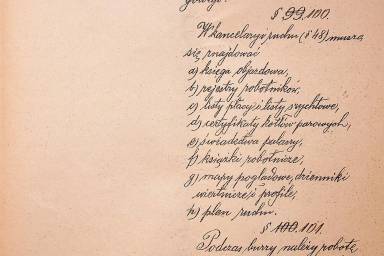 § 99. 100.
W kancelaryi ruchu (§ 48) muszą
się znajdować
a) księga objazdowa,
b) rejestry robotników,
c) listy płacy i listy szychtowe,
d) certyfikaty kotłów parowych,
e) świadectwa palaczy,
f) książki robotnicze,
g) mapy poglądowe, dzienniki
wiertnicze i profile,
h) plan ruchu.
§ 100. 101.
Podczas burzy należy robotę